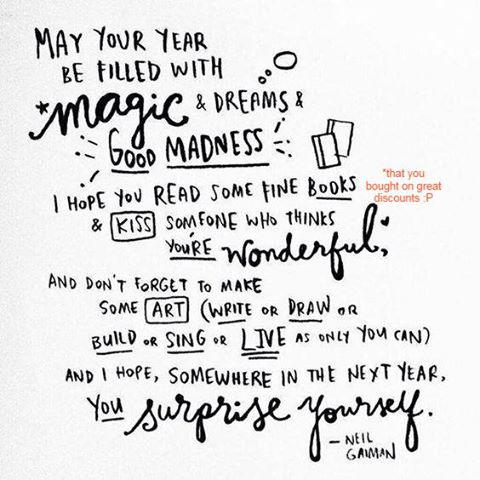 MAY YOUR YEAR
BE FILLED WITH
*magic & DREAMS &
GOOD MADNESS
I HOPE YOU READ SOME FINE BOOKS
*that you
bought on great
discounts :P
& KISS SOMEONE WHO THINKS
YOU'RE wonderful,
AND DON'T FORGET TO MAKE
SOME ART (WRITE OR DRAW OR
BUILD OR SING OR LIVE AS ONLY YOU CAN)
AND I HOPE, SOMEWHERE IN THE NEXT YEAR,
YOU surprise yourself.
– NEIL
GAIMAN